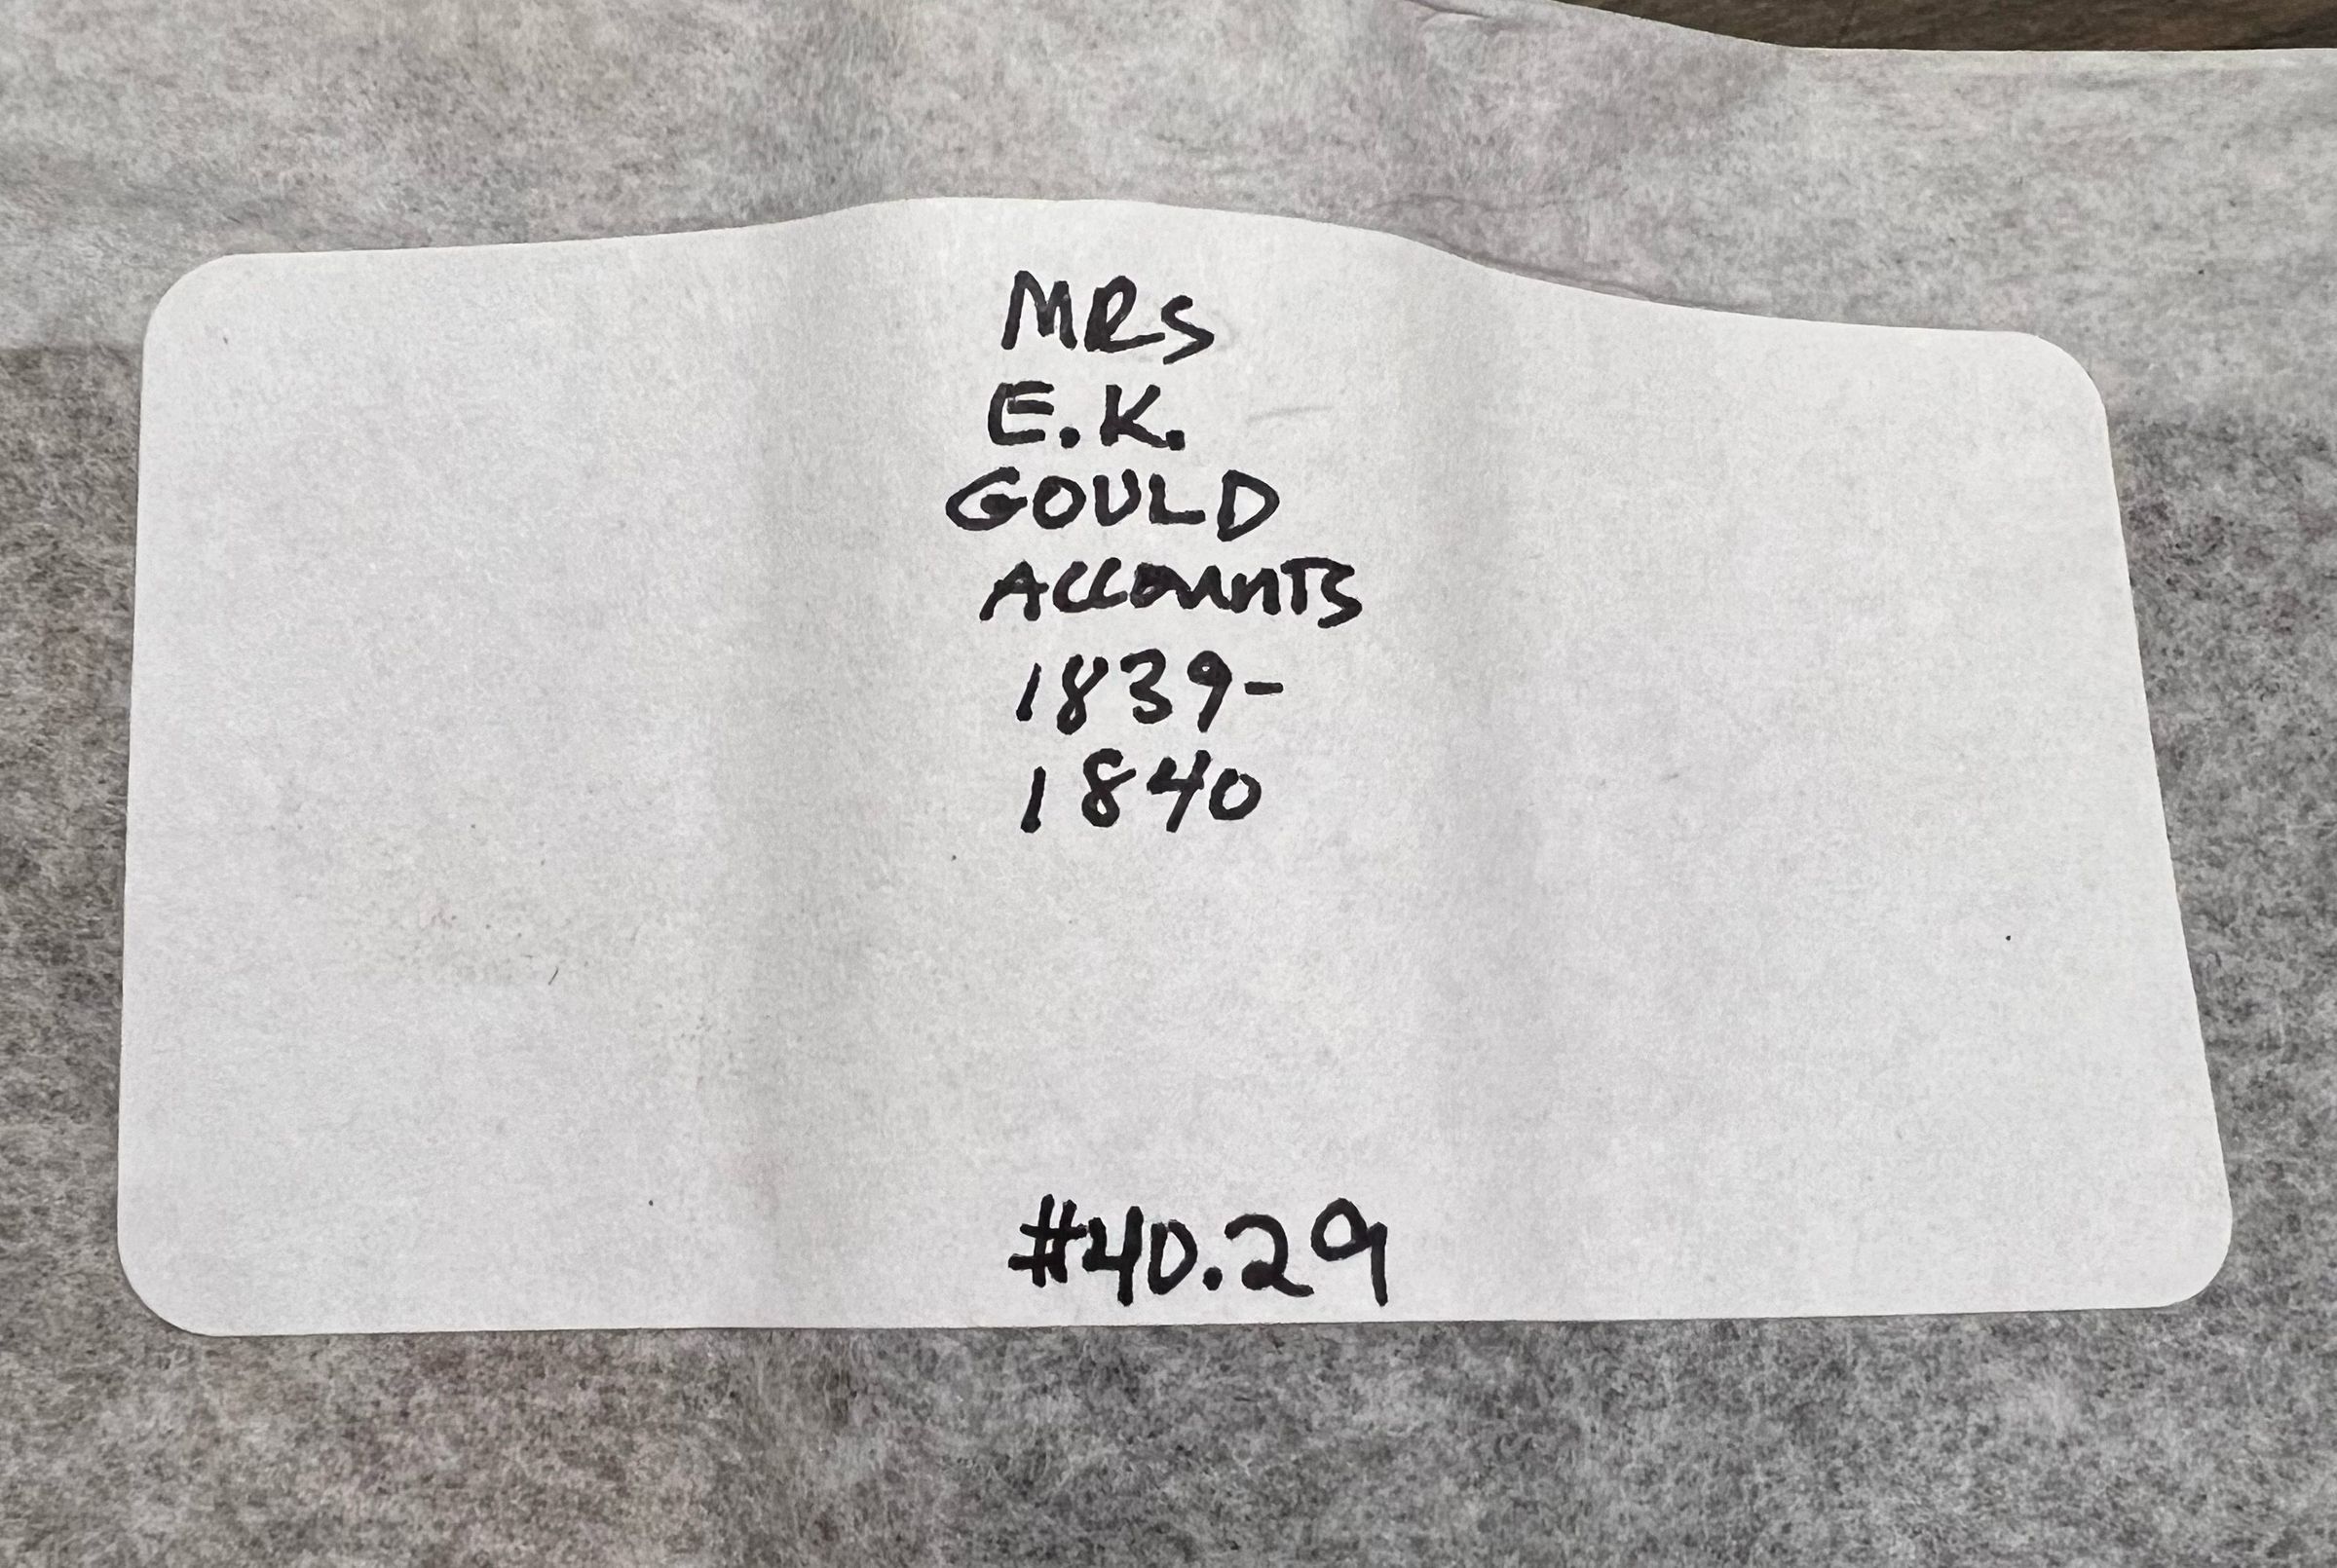 MRS
E.K.
GOULD
ACCOUNTS
1839-
1840
#40.29